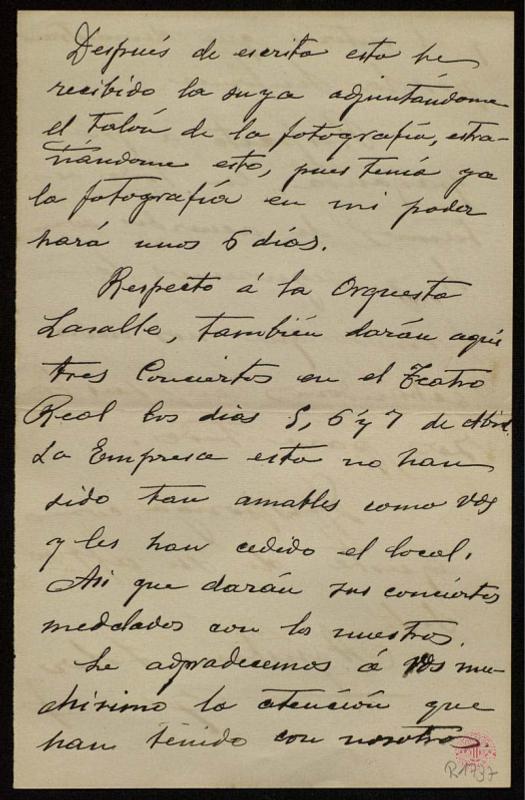 Después de escrita esta he
recibido la suya adjuntándome
el talón de la fotografía, estra-
ñándome esto, pues tenía ya
la fotografía en mi poder
hará unos 6 días.
Respecto á la Orquesta
Lasalle, también darán aquí
tres Conciertos en el Teatro
Real los dias 5, 6 y 7 de Abril.
La Empresa esta no han
sido tan amables como Vds
y les han cedido el local.
Asi que darán sus conciertos
mezclados con los nuestros.
Le agradecemos á Vds mu-
chisimo la atención que
han tenido con nosotros.
R.1737